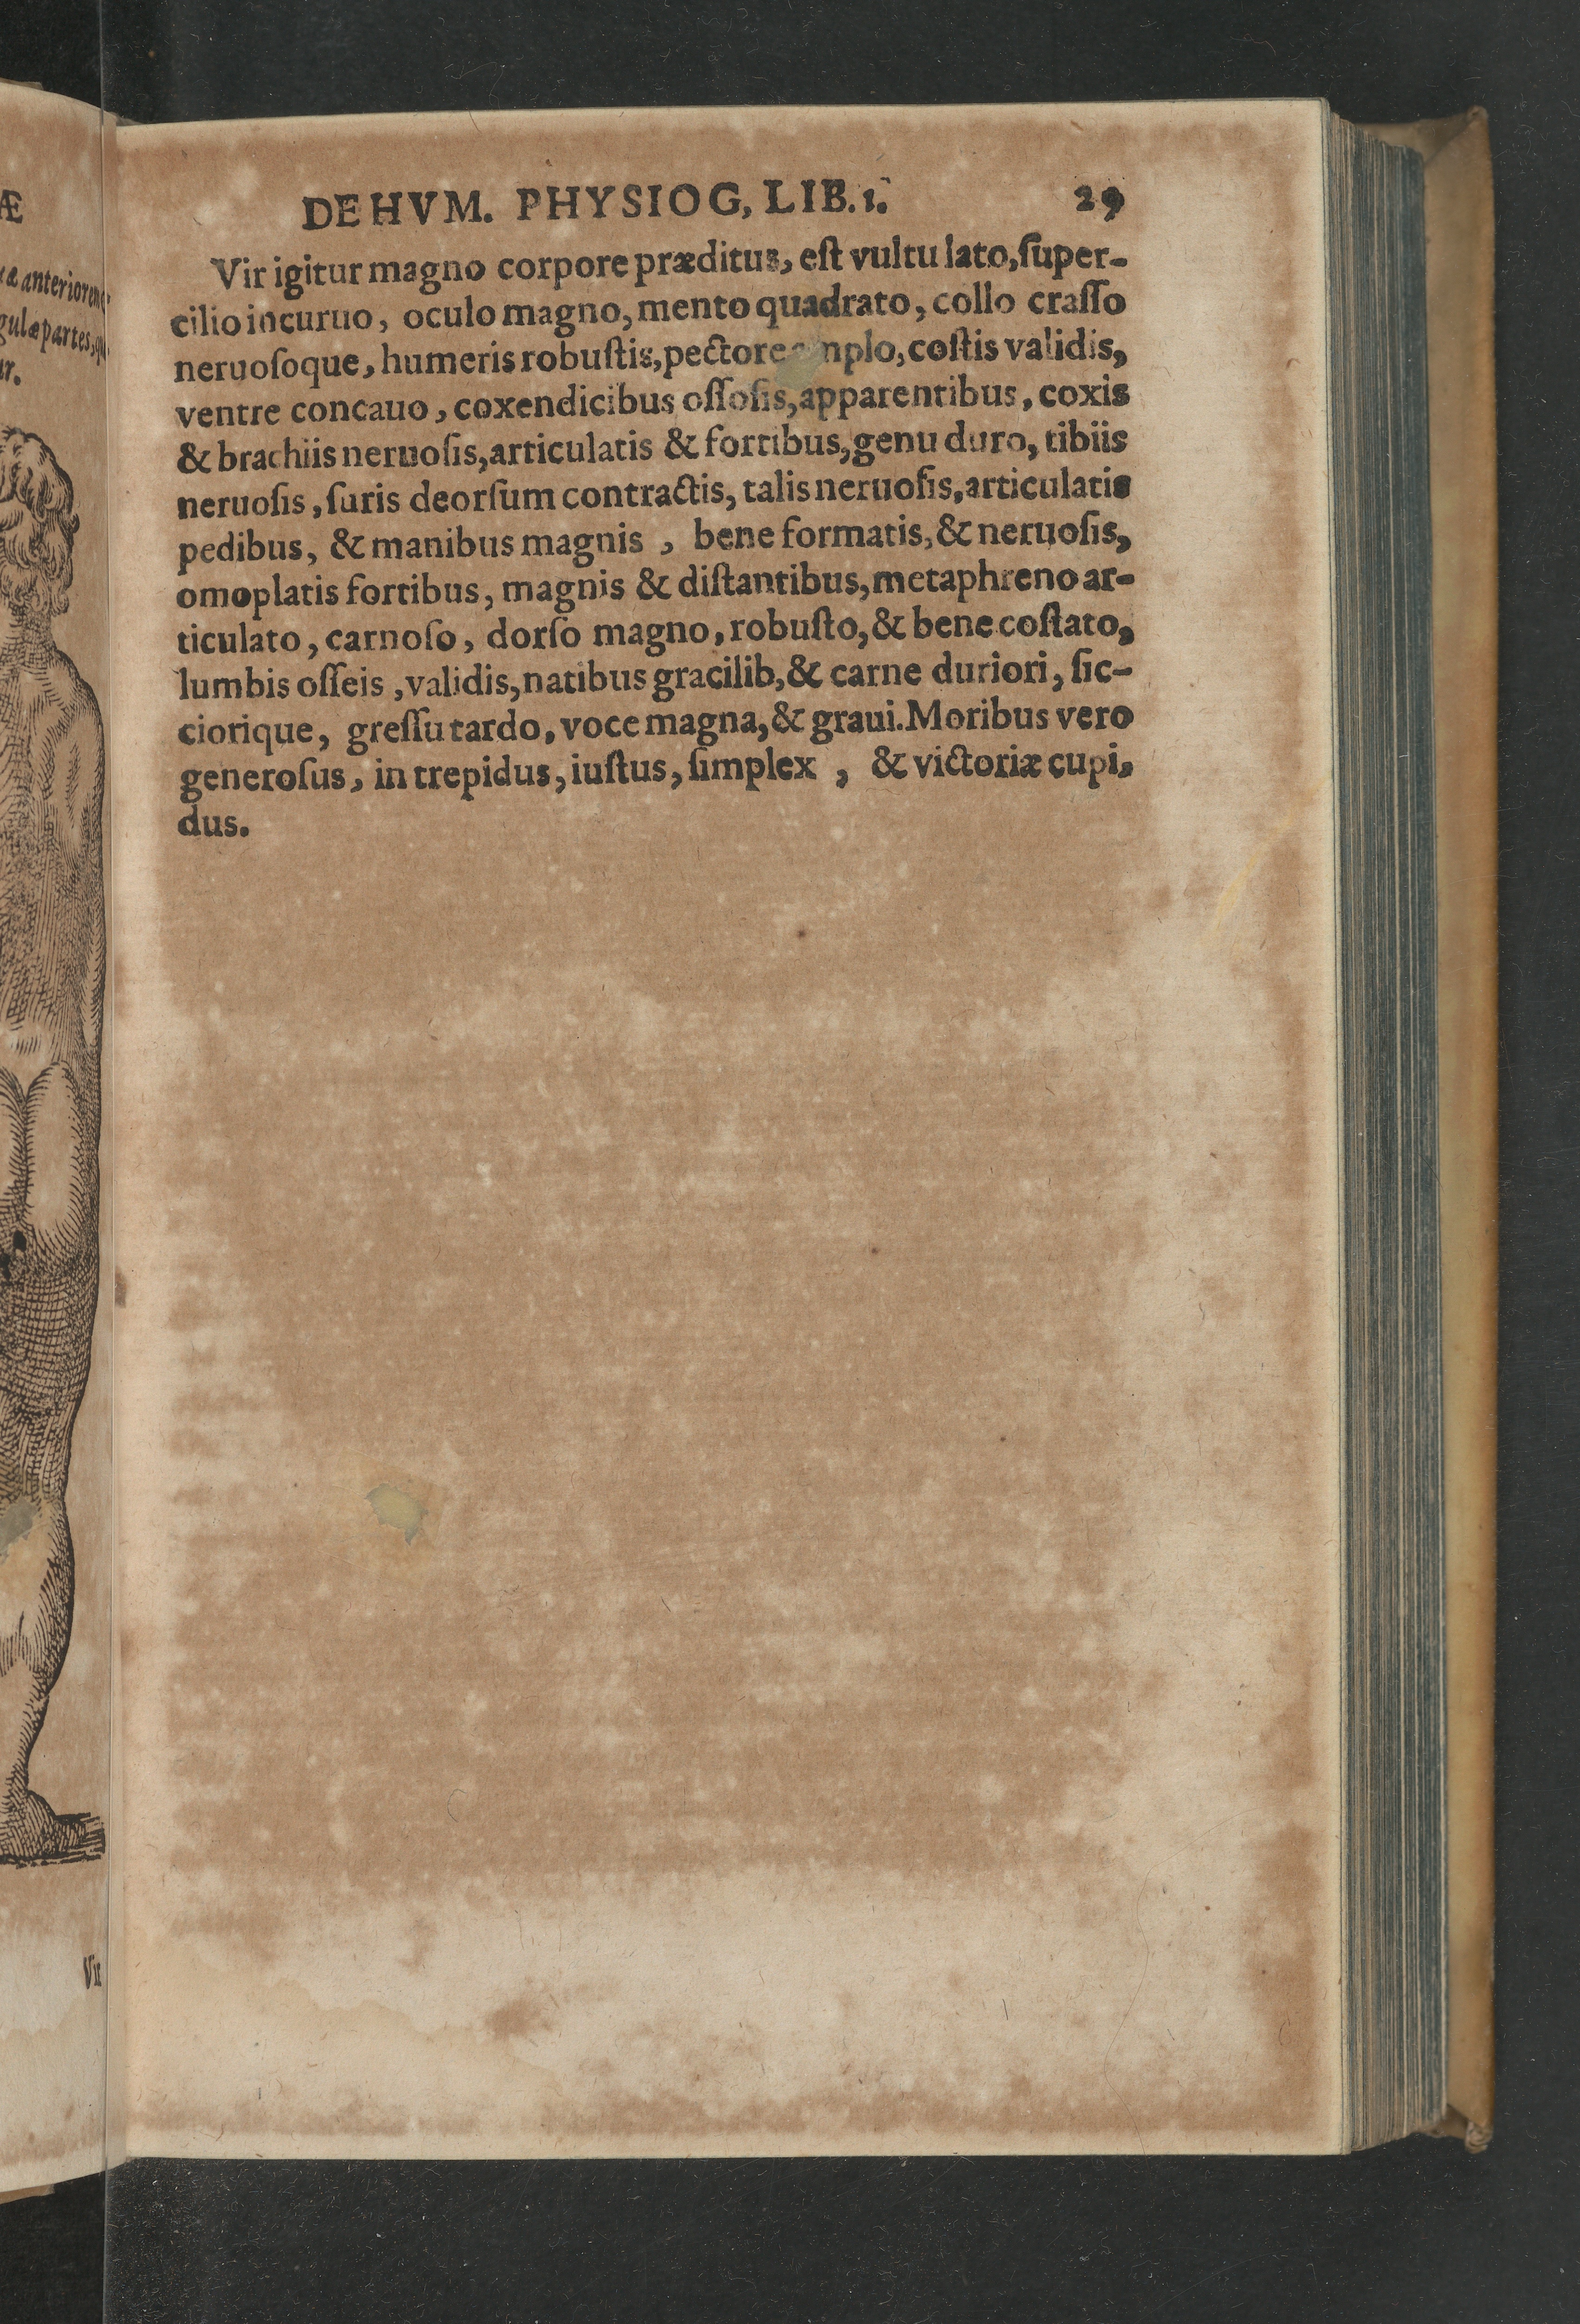 Æ
æ anterioren
gulæ partes, qu
ur.
Vir
DE HVM. PHYSIOG, LIB. 1. 29
Vir igitur magno corpore præditus, eſt vultu lato, ſuper-
cilio incuruo, oculo magno, mento quadrato, collo craſſo
neruoſoque, humeris robuſtis, pectore amplo, coſtis validis,
ventre concauo, coxendicibus oſſoſis, apparentibus, coxis
& brachiis neruoſis, articulatis & fortibus, genu duro, tibiis
neruoſis, ſuris deorſum contractis, talis neruoſis, articulatis
pedibus, & manibus magnis , bene formatis, & neruoſis,
omoplatis fortibus, magnis & diſtantibus, metaphreno ar-
ticulato, carnoſo, dorſo magno, robuſto, & bene coſtato,
lumbis oſſeis , validis, natibus gracilib, & carne duriori, ſic-
ciorique, greſſu tardo, voce magna, & graui. Moribus vero
generoſus, in trepidus, iuſtus, ſimplex , & victoriæ cupi,
dus.